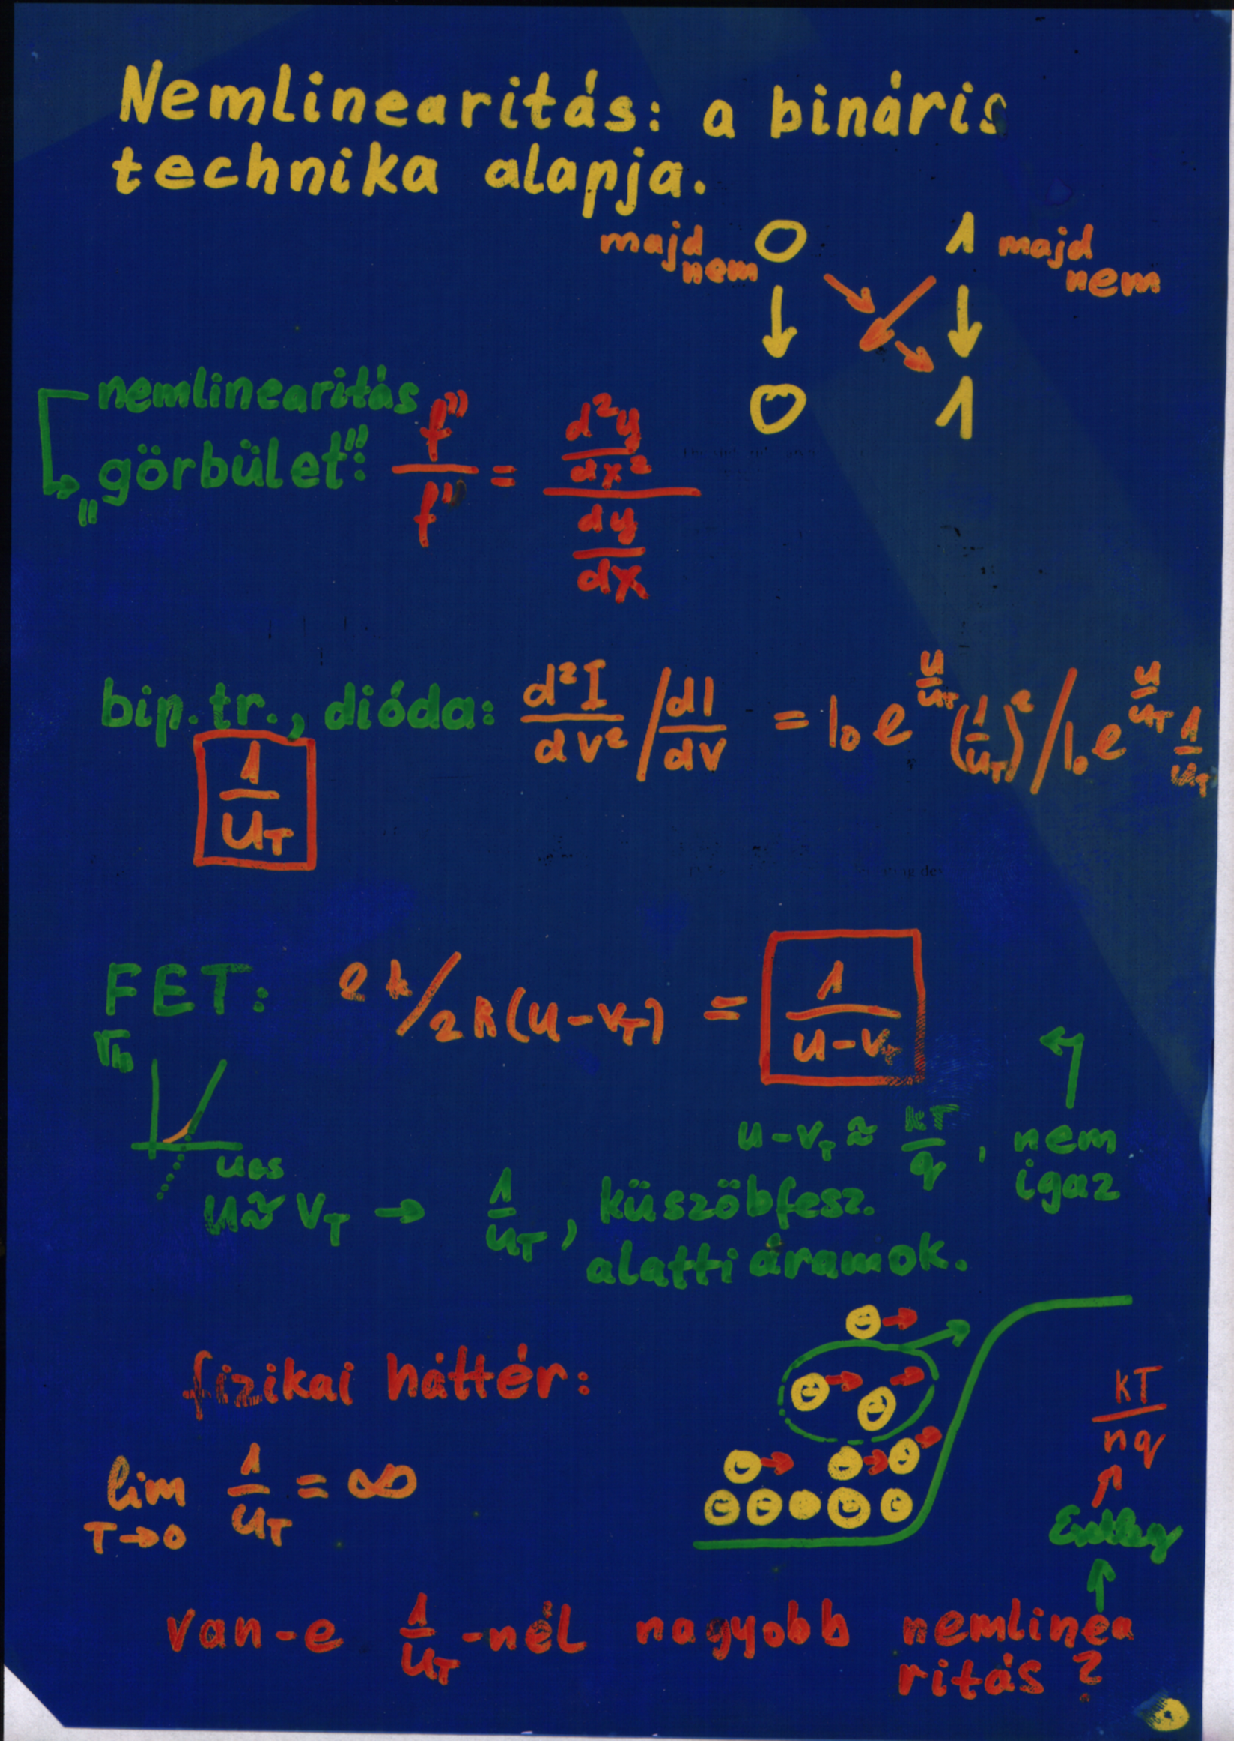 Nemlinearitás: a bináris
technika alapja.
majd nem 0 1 majd nem
0 1
nemlinearitás
"görbület": f''/f' = (d²y/dx²)/(dy/dx)
bip.tr., dióda: d²I/dV² / dI/dV = I₀ e^(u/u_T) (1/u_T)² / I₀ e^(u/u_T) 1/u_T
1/u_T
FET: 2k/2k(u-v_T) = 1/(u-v_T)
u_GS
u-v_T ≈ kT/q, nem igaz
u≈v_T → 1/u_T, küszöbfesz.
alatti áramok.
fizikai háttér:
kT/nq
lim T→0 1/u_T = ∞
van-e 1/u_T-nél nagyobb nemlinea
ritás?